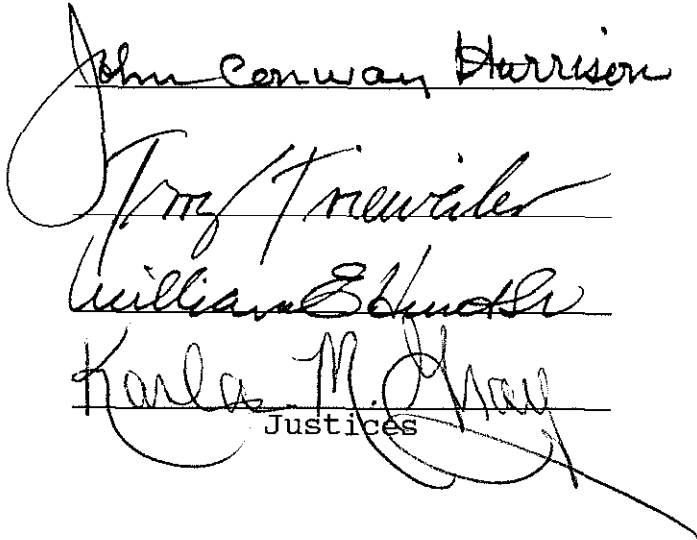 John Conway Harrison
Terry Trieweiler
William E Hunt Sr
Karla M. Gray
Justices